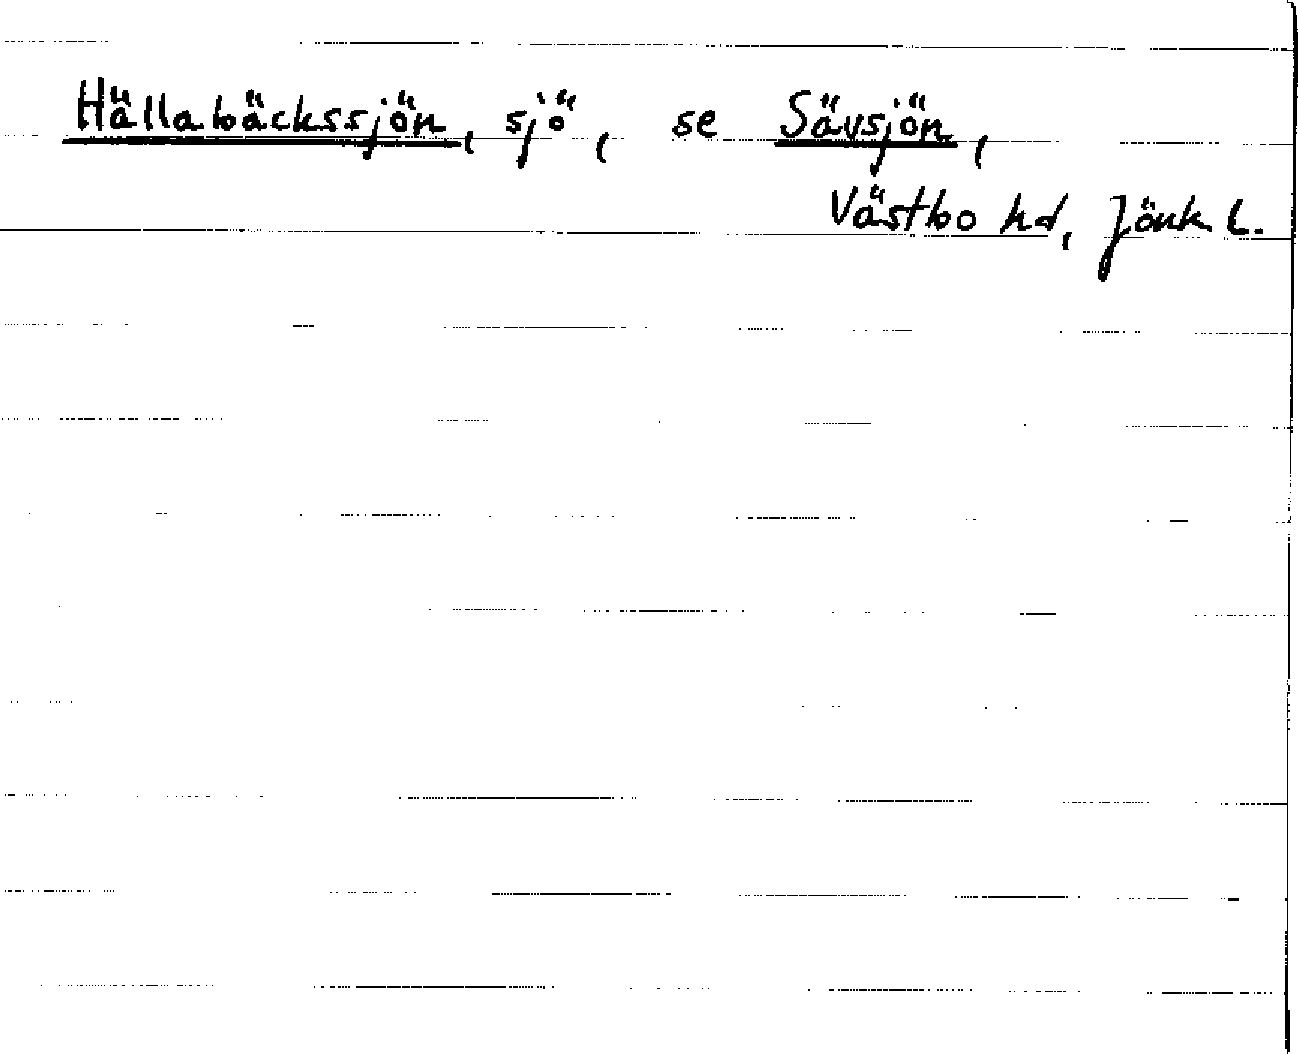 Hällabäckssjön, sjö, se Sävsjön,
Västbo hd, Jönk L.